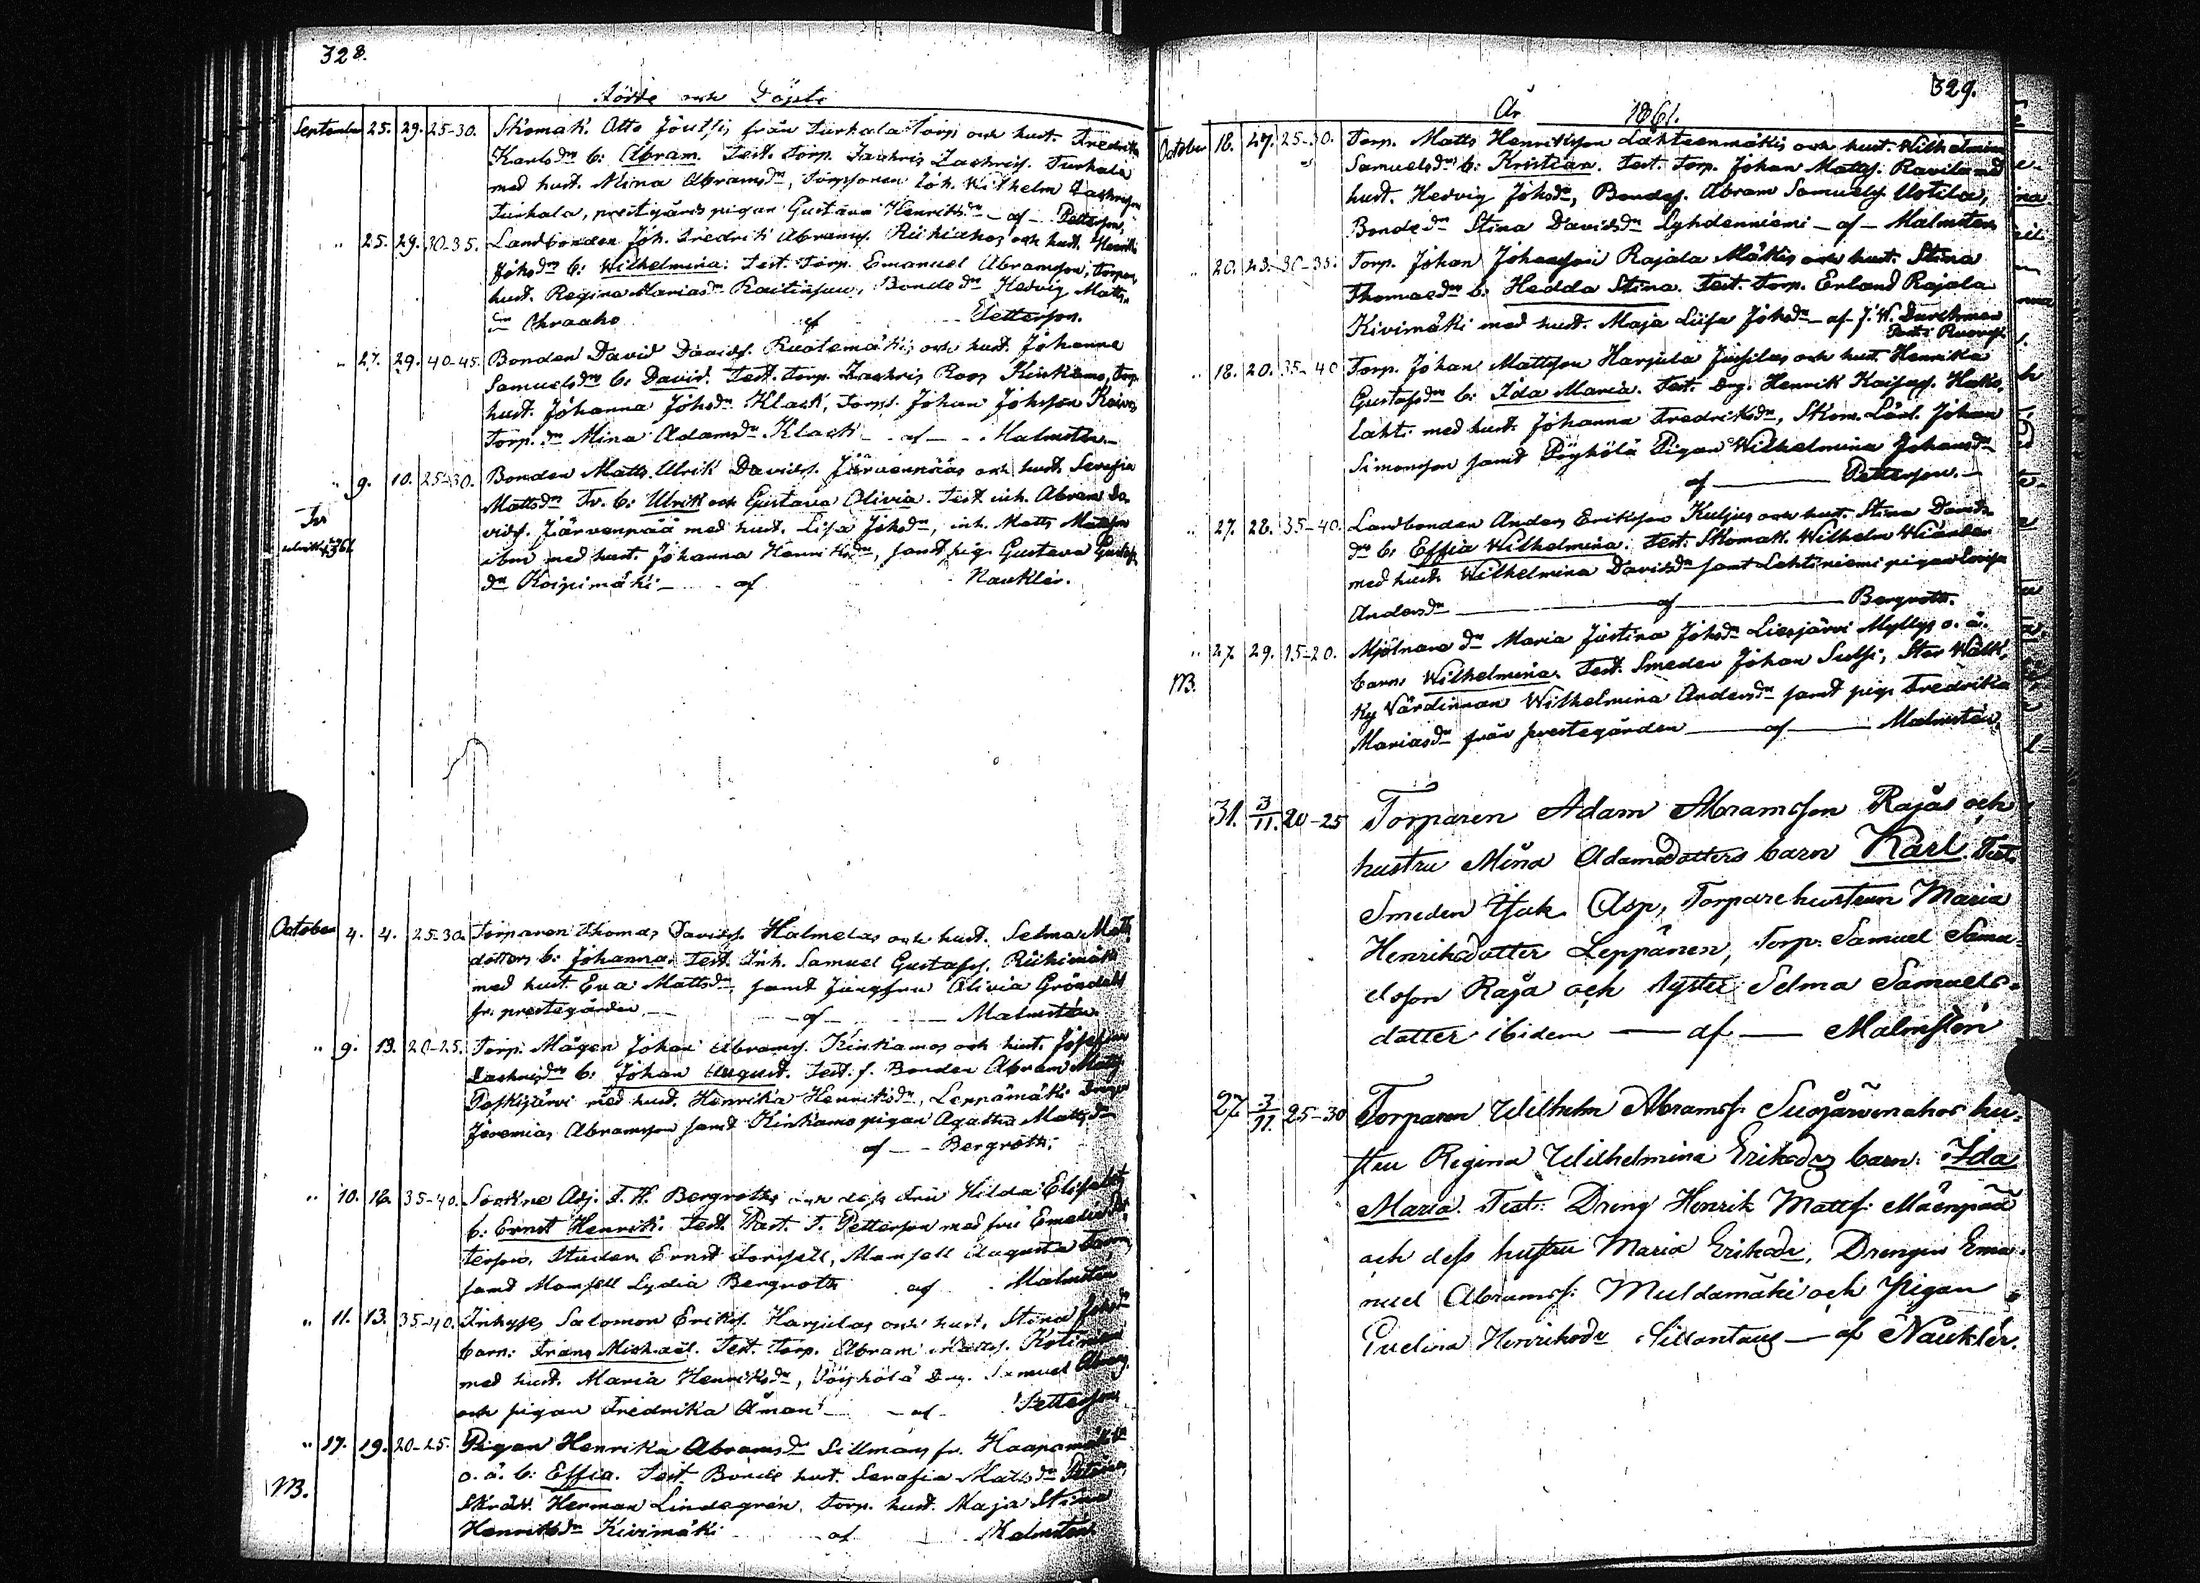 328.
Födde och Döpte
September 25. 29. 25-30. Skomak. Otto Joutsis från Turkala Torp och hust. Fredrika
Karlsdr b: Abram. Test. Torp. Zachris Zachriss. Turkala
med hust. Mina Abramsdr, Torpsonen Joh. Wilhelm Zachrisson
Turkala, prestgårds pigan Gustava Henriksdr - af - Petterson,
" 25. 29. 30-35. Landbonden Joh. Fredrik Abramss. och hust.
Johsdr b: Wilhelmina. Test. Torp. Emanuel Abramsson, Torpar
hust. Regina Mariasdr Raitinsuu, Bonde dr Hedvig Matts-
dr Ahraaho af Petterson.
" 27. 29. 40-45. Bonden David Davids. Ruotsmäkis och hust. Johanna
Samuelsdrs b: David. Test. Torp. Zachris Roos Kinkamo, Torp.
hust. Johanna Johsdr Klack, Torps. Johan Johsson
Torp. dr Mina Adamsdr Klack - af - Malmstén
" 9. 10. 25-30. Bonden Matts Ulrik Davids. Järvenpääs och hust. Serafia
Mattsdr Tv. b: Ulrik och Gustava Olivia. Test. inh. Abram Da-
vids. Järvenpää med hust. Lisa Johsdr, inh. Matts Mattsson
ibm med hust. Johanna Henriksdr, samt pig. Gustava Gustafs
dr Koipimäki - af Nauklér.
Tv.
October 4. 4. 25-30. Torparen Thomas Davids. Halmelas och hust. Selma Matts
dotters b: Johanna. Test. Inh. Samuel Gustafss. Riihimäki
med hust. Eva Mattsdr, samt Jungfru Olivia Gröndahl
fr. prestegården - af - Malmstén.
" 9. 13. 20-25. Torp. Mågen Johan Abramss. Kinkamos och hust. Josefina
Zachrisdrs b: Johan August. Test. f. Bonden Abram Matts.
Poskijärvi med hust. Henrika Henriksdr, Leppämäki Dreng
Jeremias Abramsson samt Kinkamo pigan Agatha Mattsdr
af - Bergroth.
" 10. 16. 35-40. Sockne Adj. F. H. Bergroths och dess Fru Hilda Elisabets
b: Ernst Henrik. Test. Past. F. Petterson med fru Emelie Pet-
terson, Studen. Ernst Forssell, Mamsell Augusta
samt Mamsell Lydia Bergroth af Malmstén
" 11. 13. 35-40. Inhyses Salomon Eriks. Harjulas och hust. Stina Johsdr
barn: Frans Michael. Test. Torp. Abram Mattss.
med hust. Maria Henriksdr, Pöyhölä Dr. Samuel Abramss.
och pigan Fredrika Åman - af - Petterson
" 17. 19. 20-25. Pigan Henrika Abramsdr Sillmans fr. Haapamäki
NB. o. ä. b: Effia. Test. Bonde hust. Serafia Mattsdr
Skräd. Herman Lindegrén, Torp. hust. Maja Stina
Henriksdr Kivimäki - af - Malmstén
329.
År 1861.
October 18. 27. 25-30. Torp. Matts Henriksson Lähteenmäkis och hust. Wilhelmina
Samuelsdrs b: Kristian. Test. Torp. Johan Mattss. Ravila med
hust. Hedvig Johsdr, Bondes. Abram Samuels. Uotila,
Bonde dr Stina Davidsdr Lyhdenniemi - af - Malmstén
" 20. 23. 30-35. Torp. Johan Johansson Rajala Mäkis och hust. Stina
Thomasdrs b: Hedda Stina. Test. Torp. Erland Rajala
Kivimäki med hust. Maja Lisa Johsdr - af J. W. Durchman
Past. i Ruovesi
" 18. 20. 35-40 Torp. Johan Mattsson Harjula Jussilas och hust. Henrika
Gustafsdrs b: Ida Maria. Test. Drg. Henrik
lahti med hust. Johanna Fredriksdr, Skom. Lärl. Johan
Simonsson samt Pöyhölä Pigan Wilhelmina Johansdr
af - Petterson. -
" 27. 28. 35-40. Landbonden Anders Eriksson Kuljus och hust. Stina Davids
drs b: Effia Wilhelmina. Test. Skomak. Wilhelm
med hust. Wilhelmina Davidsdr samt Lehtiniemi pigan Lovisa
Andersdr - af - Bergroth.
" 27. 29. 15-20. Mjölnare dr Maria Justina Johsdr Liesjärvi Myllys o. ä.
NB. barn: Wilhelmina. Test. Smeden Johan Sulsi, Stor
Ky Värdinnan Wilhelmina Andersdr samt pig. Fredrika
Mariasdr från prestegården - af - Malmstén.
31. 3/11. 20-25 Torparen Adam Abramsson Rajas och
hustru Mina Adamsdotters barn Karl. Test.
Smeden Isak Asp, Torparehustrun Maria
Henriksdotter Leppänen, Torp. Samuel Samu-
elsson Raja och syster Selma Samuels-
dotter ibidem - af - Malmstén
27. 3/11. 25-30 Torparen Wilhelm Abramss. Suojärvenahos hu-
stru Regina Wilhelmina Eriksdrs barn: Ida
Maria. Test: Dreng Henrik Mattss. Mäenpää
och dess hustru Maria Eriksdr, Drengen Ema-
nuel Abramss: Muldamäki och Pigan
Evelina Henriksdr Sillantaus - af Nauklér.